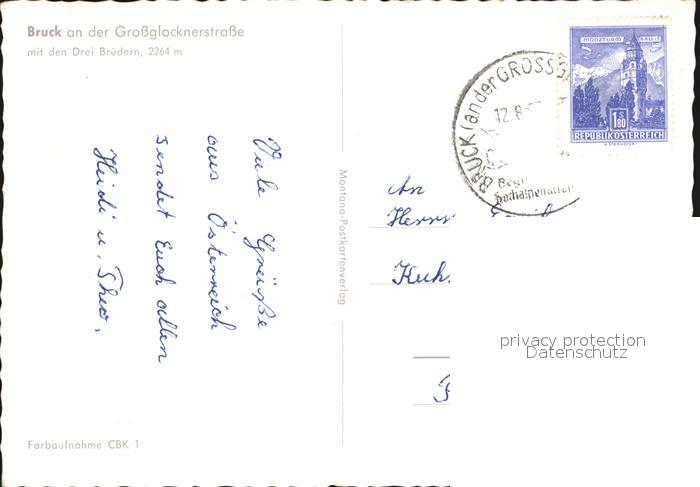 Bruck an der Großglocknerstraße
mit den Drei Brüdern, 2264 m
Viele Grüße
aus Österreich
sendet Euch allen
Heidi u. Theo.
Farbaufnahme CBK 1
Montana-Postkartenverlag
BRUCK (an der GROSSG
12.8.
MÜNZTURM HALL i.T.
1.80
REPUBLIK ÖSTERREICH
An
Herrn
Kuh.
privacy protection
Datenschutz